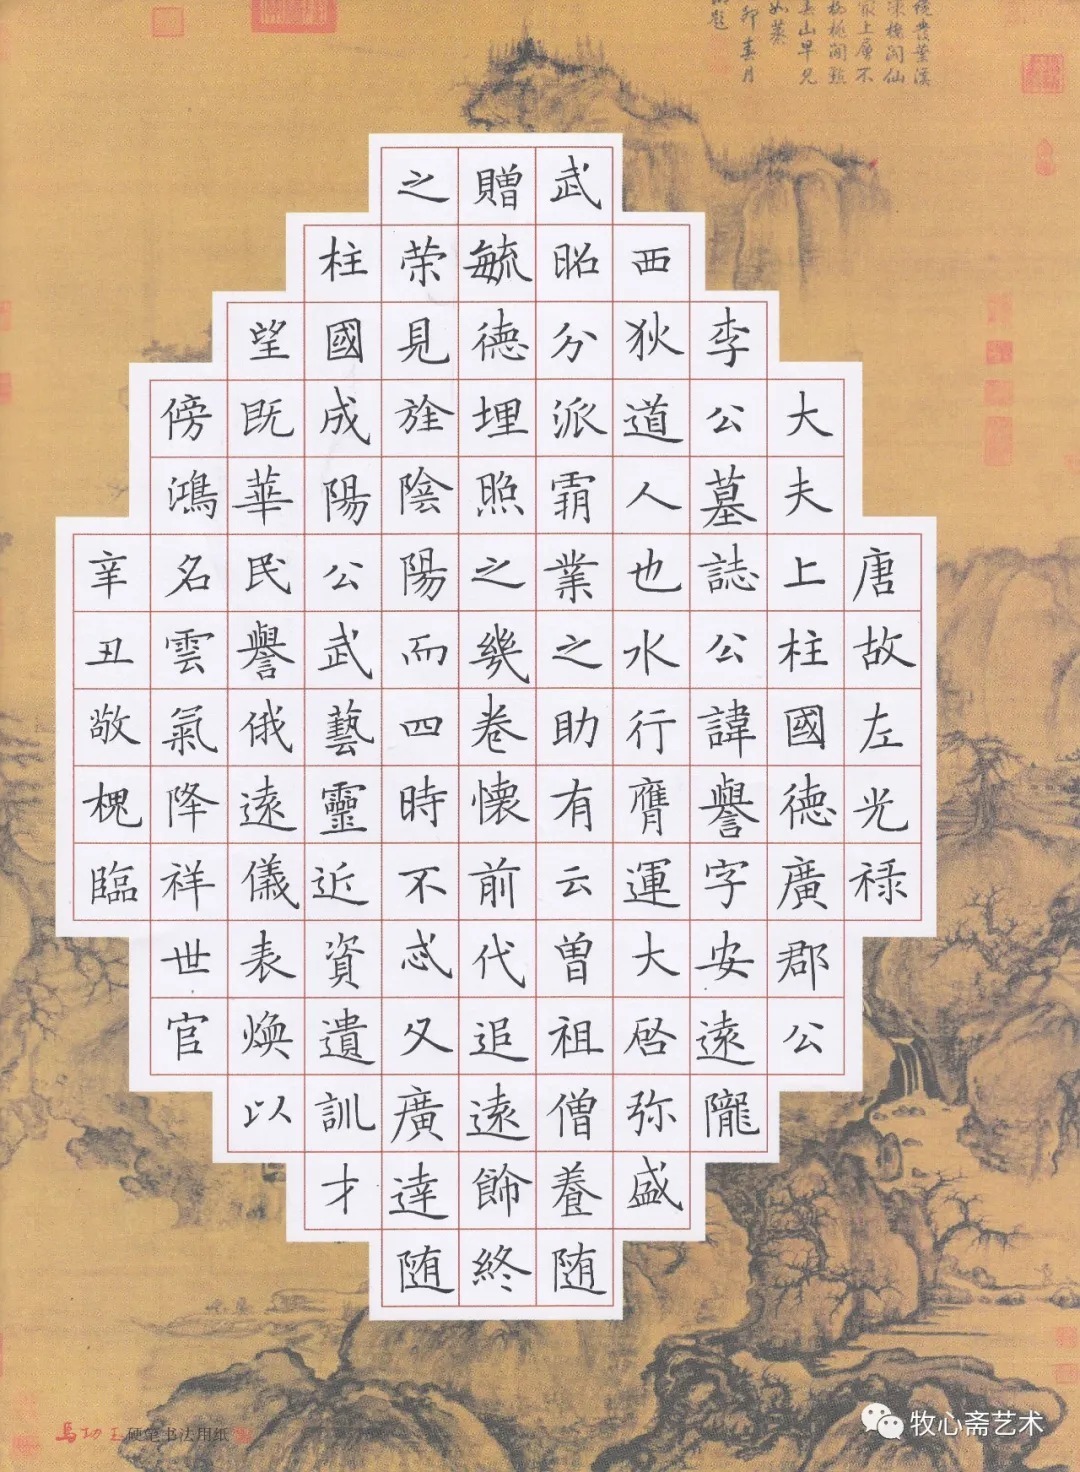 唐故左光禄
大夫上柱國德廣郡公
李公墓誌公諱譽字安遠隴
西狄道人也水行膺運大啓弥盛
武昭分派霸業之助有云曽祖僧養随
贈毓德埋照之幾卷懷前代追遠餙終
之荣見旌陰陽而四時不忒又廣達随
柱國成陽公武藝靈近資遺訓才
望既華民譽俄遠儀表煥以
傍鴻名雲氣降祥世官
辛丑敬槐臨
硬笔书法用纸
牧心斋艺术